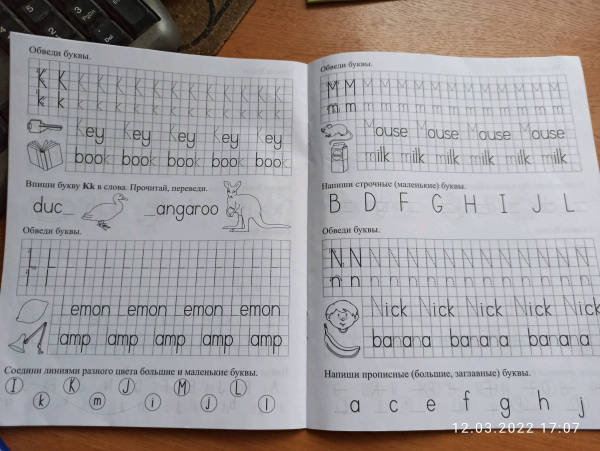 Обведи буквы.
K K K K K K K K K K K K K
k k k k k k k k k k k k k
Key Key Key Key Key
book book book book book
Впиши букву Kk в слова. Прочитай, переведи.
duc_ _angaroo
Обведи буквы.
Lemon Lemon Lemon Lemon
lamp lamp lamp lamp lamp
Соедини линиями разного цвета большие и маленькие буквы.
I K J M L
k m i j l
Обведи буквы.
M M M M M M M M M M M M M
m m m m m m m m m m m m m
Mouse Mouse Mouse Mouse
milk milk milk milk milk
Напиши строчные (маленькие) буквы.
B D F G H I J L
Обведи буквы.
N N N N N N N N N N N N N
n n n n n n n n n n n n n
Nick Nick Nick Nick Nick
banana banana banana
Напиши прописные (большие, заглавные) буквы.
a c e f g h j
12.03.2022 17:07